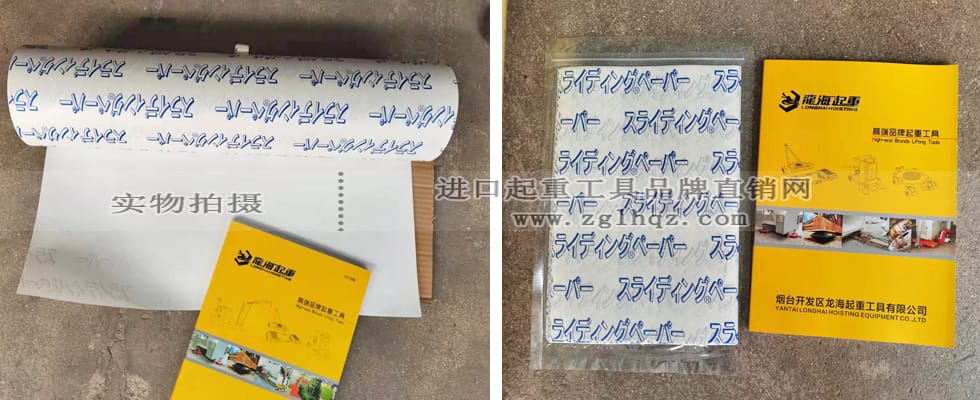 スライディングペーパー
スライディングペーパー
スライディングペーパー
スライディングペーパー
实物拍摄
龍海起重
LONGHAI HOISTING
高端品牌起重工具
High-end Brands Lifting Tools
スライディングペーパー スラ
ペーパー スライディング®ペーパー
スライディングペーパー スラ
ペーパー スライディング®ペーパー
スライディングペーパー スラ
ーパー スライディング®ペーパー
ライディングペーパー スラ
龍海起重
LONGHAI HOISTING
高端品牌起重工具
High-end Brands Lifting Tools
烟台开发区龙海起重工具有限公司
YANTAI LONGHAI HOISTING EQUIPMENT CO.,LTD
进口起重工具品牌直销网
www.zglhqz.com